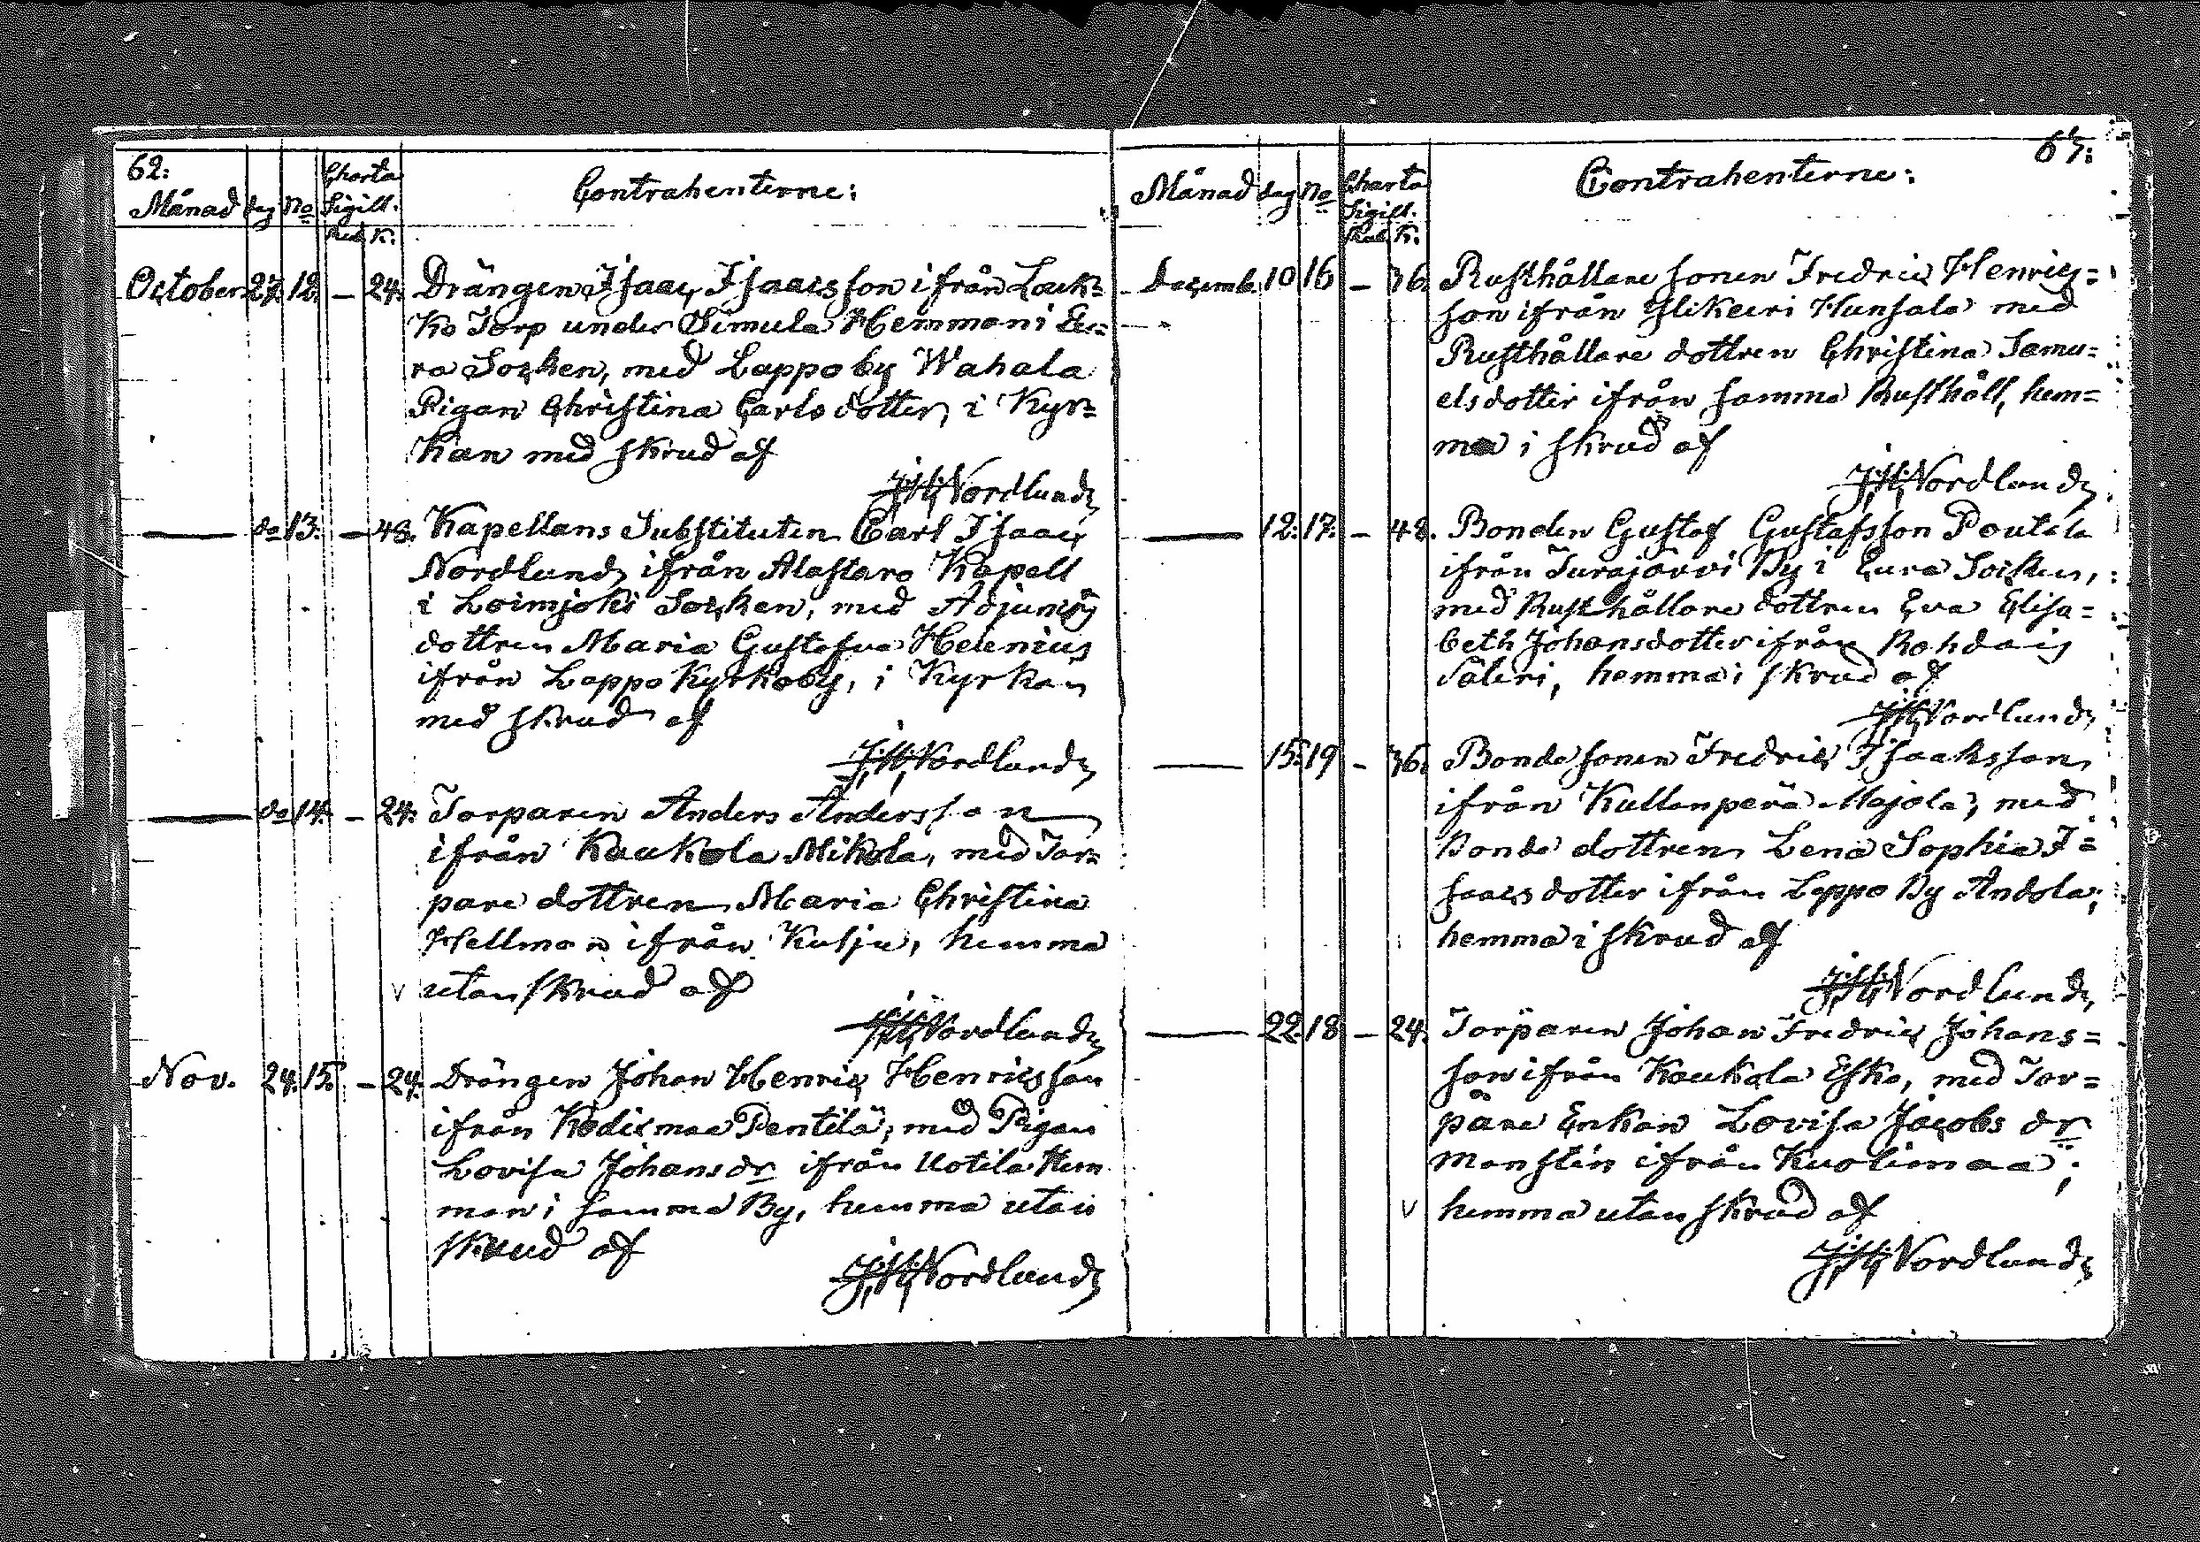 62:
Månad dag No Charta Sigill. Rub. K. Contrahenterne:
October 27. 12. — 24. Drängen Isaac Isaacsson ifrån Louk=
ko Torp under Simula Hemman i Eu=
ra Socken, med Lappo by Wahala
Pigan Christina Carlsdotter, i Kyr=
kan med skrud af
J. H. Nordlund,
— do 13. — 48. Kapellans Substituten Carl Isaac
Nordlund, ifrån Alastaro Kapell
i Loimjoki Socken, med Adjuncts
dottren Maria Gustafva Helenius
ifrån Lappo Kyrkoby, i Kyrkan
med skrud af
J. H. Nordlund,
— do 14. — 24. Torparen Anders Andersson
ifrån Kaukola Mikola, med Tor=
pare dottren Maria Christina
Hellman ifrån Kulju, hemma
v utan skrud af
J. H. Nordlund,
Nov. 24. 15. — 24. Drängen Johan Henric Henricsson
ifrån Kodixmaa Pentilä, med Pigan
Lovisa Johansdr ifrån Uotila Hem
man i samma By, hemma utan
skrud af
J. H. Nordlund,
67:
Månad dag No Charta Sigill. Rub. K. Contrahenterne:
Decemb. 10 16 — 36. Rusthållare sonen Fredric Henrics=
son ifrån Hunsala med
Rusthållare dottren Christina Samu=
elsdotter ifrån samma Rusthåll, hem=
ma i skrud af
J. H. Nordlund,
— 12. 17. — 48. Bonden Gustaf Gustafsson Poutala
ifrån Turajärvi By i Eura Socken,
med Rusthållare dottren Eva Elisa=
beth Johansdotter ifrån Rohdais
Säleri, hemma i skrud af
J. H. Nordlund,
— 15. 19 — 36. Bonde sonen Fredric Isaaksson
ifrån Kullanperä Majola, med
Bonde dottren Lena Sophia I=
saacsdotter ifrån Lappo By Andola,
hemma i skrud af
J. H. Nordlund,
— 22. 18 — 24. Torparen Johan Fredric Johans=
son ifrån Kaukola Esko, med Tor=
pare Enkan Lovisa Jacobs dr
Manstin ifrån Kuolimaa,
v hemma utan skrud af
J. H. Nordlund,